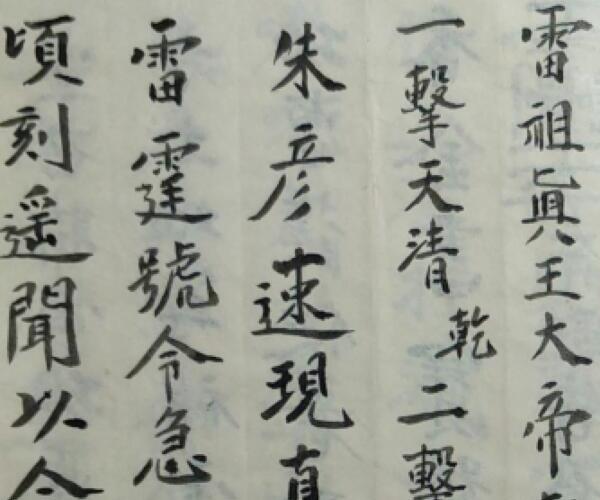 雷祖眞王大帝
一擊天清乾二擊
朱彦速現真
雷霆號令急
頃刻遥聞以令